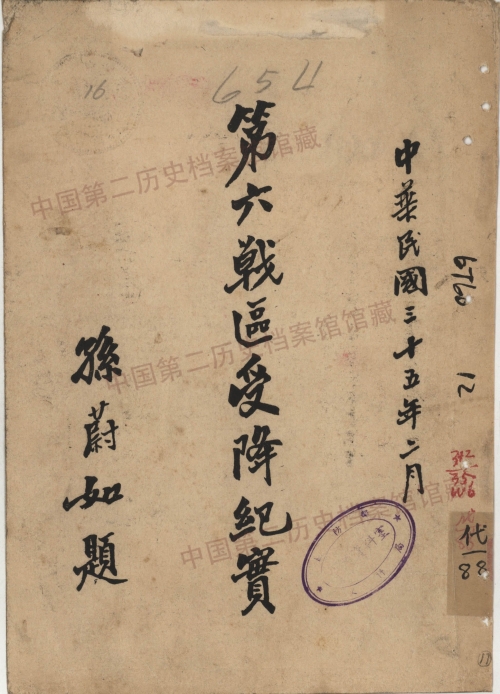 654
16
中華民國三十五年二月
第六戰區受降紀實
孫蔚如題
中国第二历史档案馆馆藏
中国第二历史档案馆馆藏
中国第二历史档案馆馆藏
6760
12
代一88
11